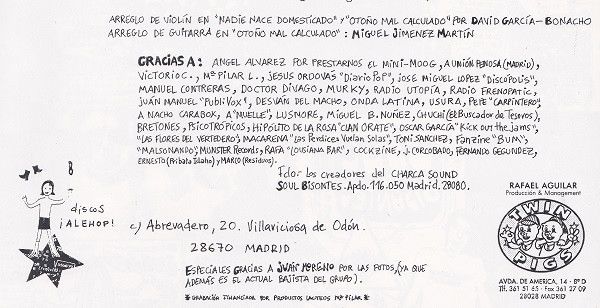 ARREGLO DE VIOLÍN EN "NADIE NACE DOMESTICADO" Y "OTOÑO MAL CALCULADO" POR DAVID GARCÍA-BONACHO
ARREGLO DE GUITARRA EN "OTOÑO MAL CALCULADO": MIGUEL JIMENEZ MARTÍN
GRACIAS A: ANGEL ALVAREZ POR PRESTARNOS EL MINI-MOOG, A UNIÓN PENOSA (MADRID),
VICTORIO C., Mª PILAR L., JESUS ORDOVAS "DIARIO POP", JOSE MIGUEL LOPEZ "DISCÓPOLIS",
MANUEL CONTRERAS, DOCTOR DIVAGO, MURKY, RADIO UTOPÍA, RADIO FRENOPATIC,
JUAN MANUEL "PUBLI VOX", DESVÁN DEL MACHO, ONDA LATINA, USURA, PEPE "CARPINTERO",
A NACHO CARABOK, A "MUELLE", LUSMORE, MIGUEL B. NUÑEZ, CHUCHI (El Buscador de Tesoros),
BRETONES, PSICOTRÓPICOS, HIPÓLITO DE LA ROSA "CLAN ORATE", OSCAR GARCÍA "Kick out the jams",
"LAS FLORES DEL VERTEDERO", MACARENA "Las Perdices Vuelan Solas", TONI SANCHEZ, Fanzine "BUM",
"MALSONANDO", MUNSTER Records, RAFA "LOUSIANA BAR", COCKZINE, J. CORCOBADO, FERNANDO GEGUNDEZ,
ERNESTO (Pribata Idaho) y MARCO (Residuos).
Fdo: los creadores del CHARCA SOUND
SOUL BISONTES. Apdo. 116.050 Madrid. 28080.
discos
¡ALEHOP!
c) Abrevadero, 20. Villaviciosa de Odón.
28670 MADRID
ESPECIALES GRACIAS A JUAN MORENO POR LAS FOTOS, (YA QUE
ADEMÁS ES EL ACTUAL BAJISTA DEL GRUPO).
* GRABACIÓN FINANCIADA POR PRODUCTOS LACTEOS Mª PILAR *
RAFAEL AGUILAR
Producción & Management
TWIN
PIGS
AVDA. DE AMERICA, 14 - 8º D
Tlf. 361 51 65 - Fax 361 27 09
28028 MADRID